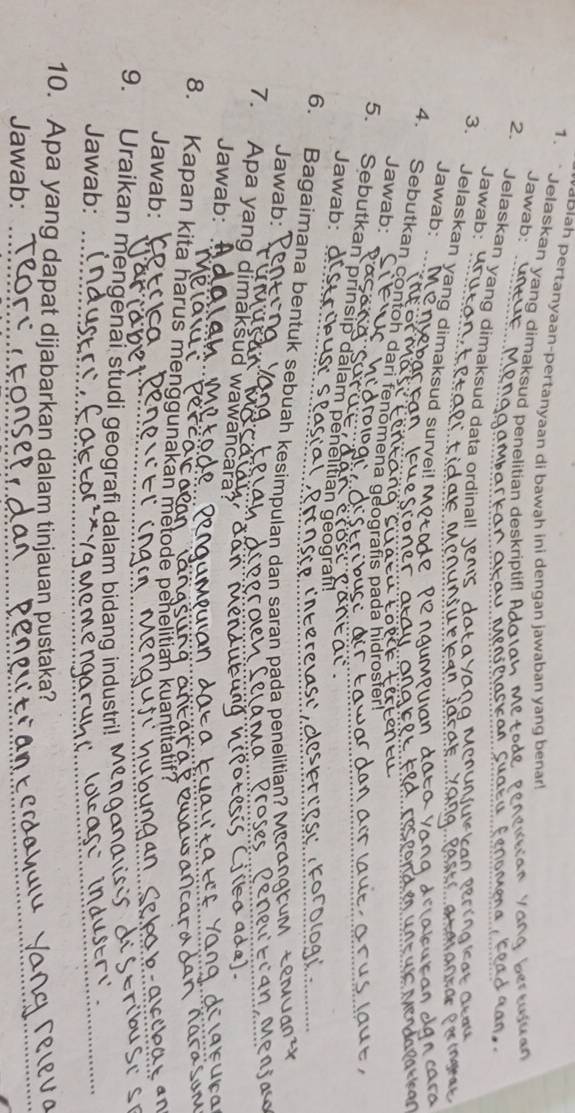 Jawablah pertanyaan-pertanyaan di bawah ini dengan jawaban yang benar!
1. Jelaskan yang dimaksud penelitian deskriptif! Adalah metode penelitian yang bertujuan
Jawab: untuk menggambarkan atau menjelaskan suatu fenomena, keadaan.
2. Jelaskan yang dimaksud data ordinal! Jenis data yang menunjukkan peringkat atau
Jawab: urutan, tetapi tidak menunjukkan jarak yang pasti antar peringkat
3. Jelaskan yang dimaksud survei! Metode pengumpulan data yang dilakukan dgn cara
Jawab: Menyebarkan kuesioner atau angket ked responden untuk Mendapatkan
informasi tentang suatu topik tertentu
4. Sebutkan contoh dari fenomena geografis pada hidrosfer!
Jawab: Siklus hidrologi, distribusi air tawar dan air laut, arus laut,
pasang surut, dan erosi pantai.
5. Sebutkan prinsip dalam penelitian geografi!
Jawab: distribusi spasial, prinsip interelasi, deskripsi, korologi.
6. Bagaimana bentuk sebuah kesimpulan dan saran pada penelitian? Merangkum temuan²x
Jawab: Penting yang telah diperoleh selama proses penelitian,
rumusan masalah, dan mendukung hipotesis (jika ada).
7. Apa yang dimaksud wawancara?
Jawab: Adalah metode pengumpulan data kualitatif yang
melalui percakapan langsung antara pewawancara dan
8. Kapan kita harus menggunakan metode penelitian kuantitatif?
Jawab: ketika peneliti ingin menguji hubungan sebab-akibat
variabel
9. Uraikan mengenai studi geografi dalam bidang industri! Menganalisis distribusi
Jawab: industri, faktor²x yg memengaruhi lokasi industri.
10. Apa yang dapat dijabarkan dalam tinjauan pustaka?
Jawab: Teori, konsep, dan penelitian terdahulu yang